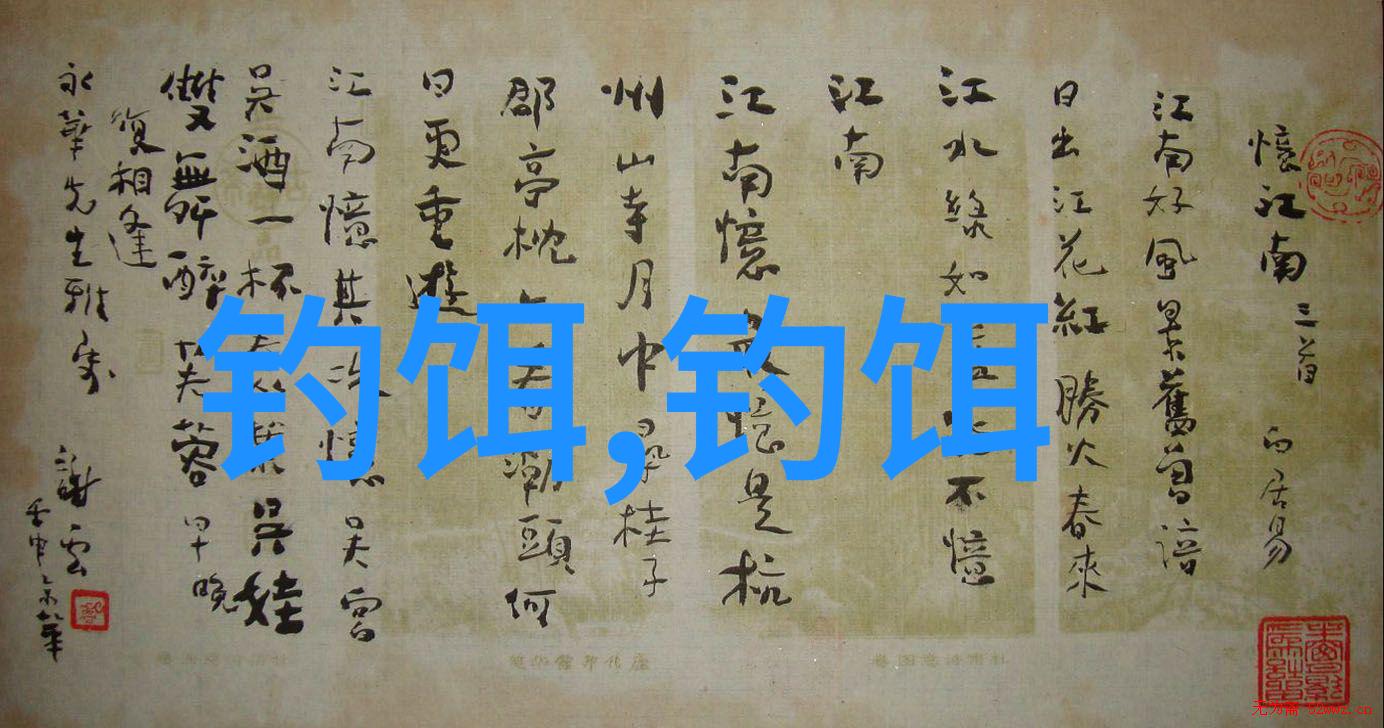 憶江南三首 白居易
江南好風景舊曾諳
日出江花紅勝火春來
江水綠如 不憶
江南
江南憶最憶是杭
州山寺月中尋桂子
郡亭枕 潮頭何
日更重遊
江南憶其次憶吳宮
吳酒一杯春 吳娃
雙舞 醉芙蓉早晚
復相逢
永華先生雅
謝雲
壬申
钓饵,钓饵